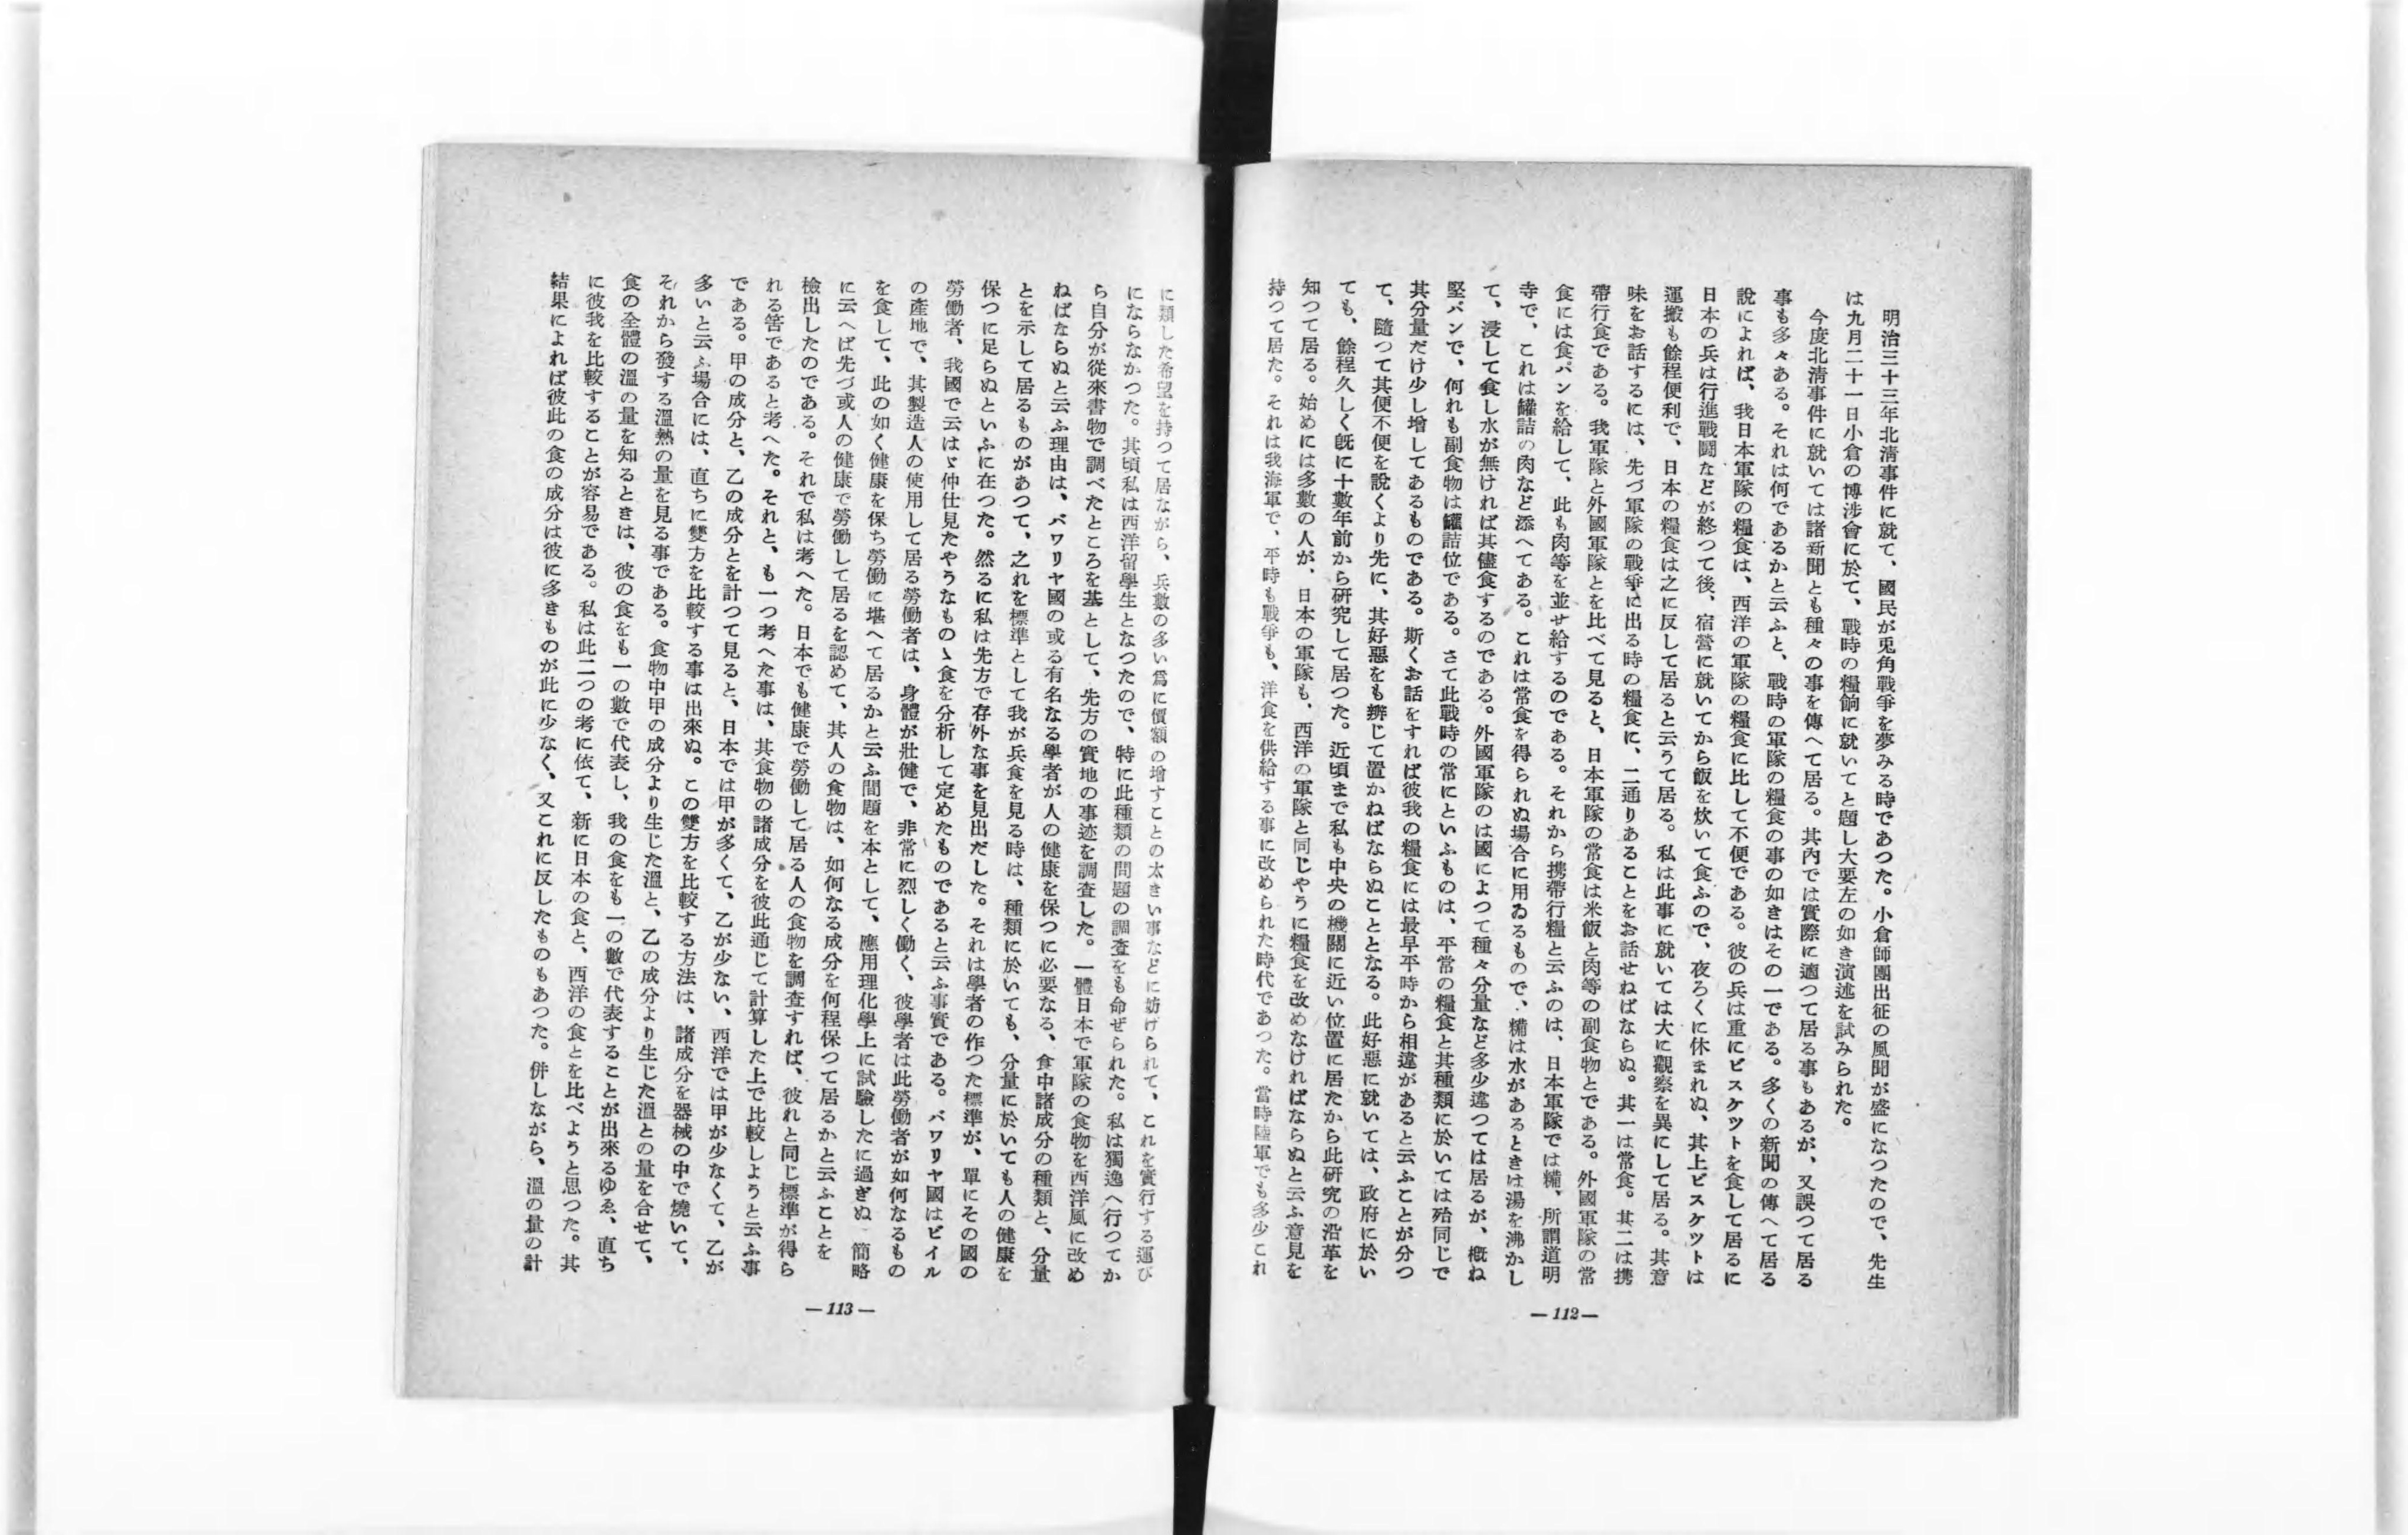 明治三十三年北清事件に就て、國民が兎角戰爭を夢みる時であつた。小倉師團出征の風聞が盛になつたので、先生
は九月二十一日小倉の博涉會に於て、戰時の糧餉に就いてと題し大要左の如き演述を試みられた。
今度北淸事件に就いては諸新聞とも種々の事を傳へて居る。其內では實際に適つて居る事もあるが、又誤つて居る
事も多々ある。それは何であるかと云ふと、戰時の軍隊の糧食の事の如きはその一である。多くの新聞の傳へて居る
說によれば、我日本軍隊の糧食は、西洋の軍隊の糧食に比して不便である。彼の兵は重にビスケツトを食して居るに
日本の兵は行進戰鬪などが終つて後、宿營に就いてから飯を炊いて食ふので、夜ろくに休まれぬ、其上ビスケツトは
運搬も餘程便利で、日本の糧食は之に反して居ると云うて居る。私は此事に就いては大に觀察を異にして居る。其意
味をお話するには、先づ軍隊の戰爭に出る時の糧食に、二通りあることをお話せねばならぬ。其一は常食。其二は携
帶行食である。我軍隊と外國軍隊とを比べて見ると、日本軍隊の常食は米飯と肉等の副食物とである。外國軍隊の常
食には食パンを給して、此も肉等を並せ給するのである。それから携帶行糧と云ふのは、日本軍隊では糒、所謂道明
寺で、これは罐詰の肉など添へてある。これは常食を得られぬ場合に用ゐるもので、糒は水があるときは湯を沸かし
て、浸して食し水が無ければ其儘食するのである。外國軍隊のは國によつて種々分量など多少違つては居るが、槪ね
堅パンで、何れも副食物は罐詰位である。さて此戰時の常にといふものは、平常の糧食と其種類に於いては殆同じで
其分量だけ少し增してあるものである。斯くお話をすれば彼我の糧食には最早平時から相違があると云ふことが分つ
て、隨つて其便不便を說くより先に、其好惡をも辨じて置かねばならぬこととなる。此好惡に就いては、政府に於い
ても、餘程久しく旣に十數年前から硏究して居つた。近頃まで私も中央の機關に近い位置に居たから此硏究の沿革を
知つて居る。始めには多數の人が、日本の軍隊も、西洋の軍隊と同じやうに糧食を改めなければならぬと云ふ意見を
持つて居た。それは我海軍で、平時も戰爭も、洋食を供給する事に改められた時代であつた。當時陸軍でも多少これ
— 112 —
に類した希望を持つて居ながら、兵數の多い爲に價額の增すことの太きい事などに妨げられて、これを實行する運び
にならなかつた。其頃私は西洋留學生となつたので、特に此種類の問題の調査をも命ぜられた。私は獨逸へ行つてか
ら自分が從來書物で調べたところを基として、先方の實地の事迹を調査した。一體日本で軍隊の食物を西洋風に改め
ねばならぬと云ふ理由は、バワリヤ國の或る有名なる學者が人の健康を保つに必要なる、食中諸成分の種類と、分量
とを示して居るものがあつて、之れを標準として我が兵食を見る時は、種類に於いても、分量に於いても人の健康を
保つに足らぬといふに在つた。然るに私は先方で存外な事を見出だした。それは學者の作つた標準が、單にその國の
勞働者、我國で云はゞ仲仕見たやうなものゝ食を分析して定めたものであると云ふ事實である。バワリヤ國はビイル
の產地で、其製造人の使用して居る勞働者は、身體が壯健で、非常に烈しく働く、彼學者は此勞働者が如何なるもの
を食して、此の如く健康を保ち勞働に堪へて居るかと云ふ間題を本として、應用理化學上に試驗したに過ぎぬ 簡略
に云へば先づ或人の健康で勞働して居るを認めて、其人の食物は、如何なる成分を何程保つて居るかと云ふことを
檢出したのである。それで私は考へた。日本でも健康で勞働して居る人の食物を調査すれば、彼れと同じ標準が得ら
れる筈であると考へた。それと、も一つ考へた事は、其食物の諸成分を彼此通じて計算した上で比較しようと云ふ事
である。甲の成分と、乙の成分とを計つて見ると、日本では甲が多くて、乙が少ない、西洋では甲が少なくて、乙が
多いと云ふ場合には、直ちに雙方を比較する事は出來ぬ。この雙方を比較する方法は、諸成分を器械の中で燒いて、
それから發する溫熱の量を見る事である。食物中甲の成分より生じた溫と、乙の成分より生じた溫との量を合せて、
食の全體の溫の量を知るときは、彼の食をも一の數で代表し、我の食をも一の數で代表することが出來るゆゑ、直ち
に彼我を比較することが容易である。私は此二つの考に依て、新に日本の食と、西洋の食とを比べようと思つた。其
結果によれば彼此の食の成分は彼に多きものが此に少なく、又これに反したものもあつた。併しながら、溫の量の計
— 113 —